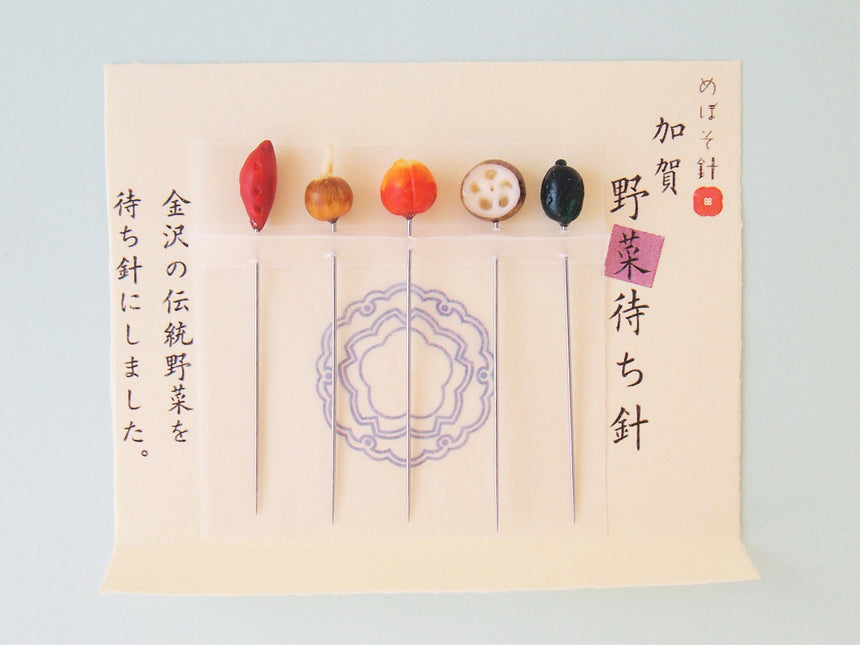 めぼそ針
加賀
野菜待ち針
金沢の伝統野菜を
待ち針にしました。